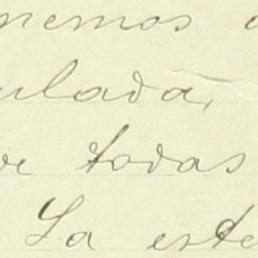 nemos
ulada,
de todas
La este